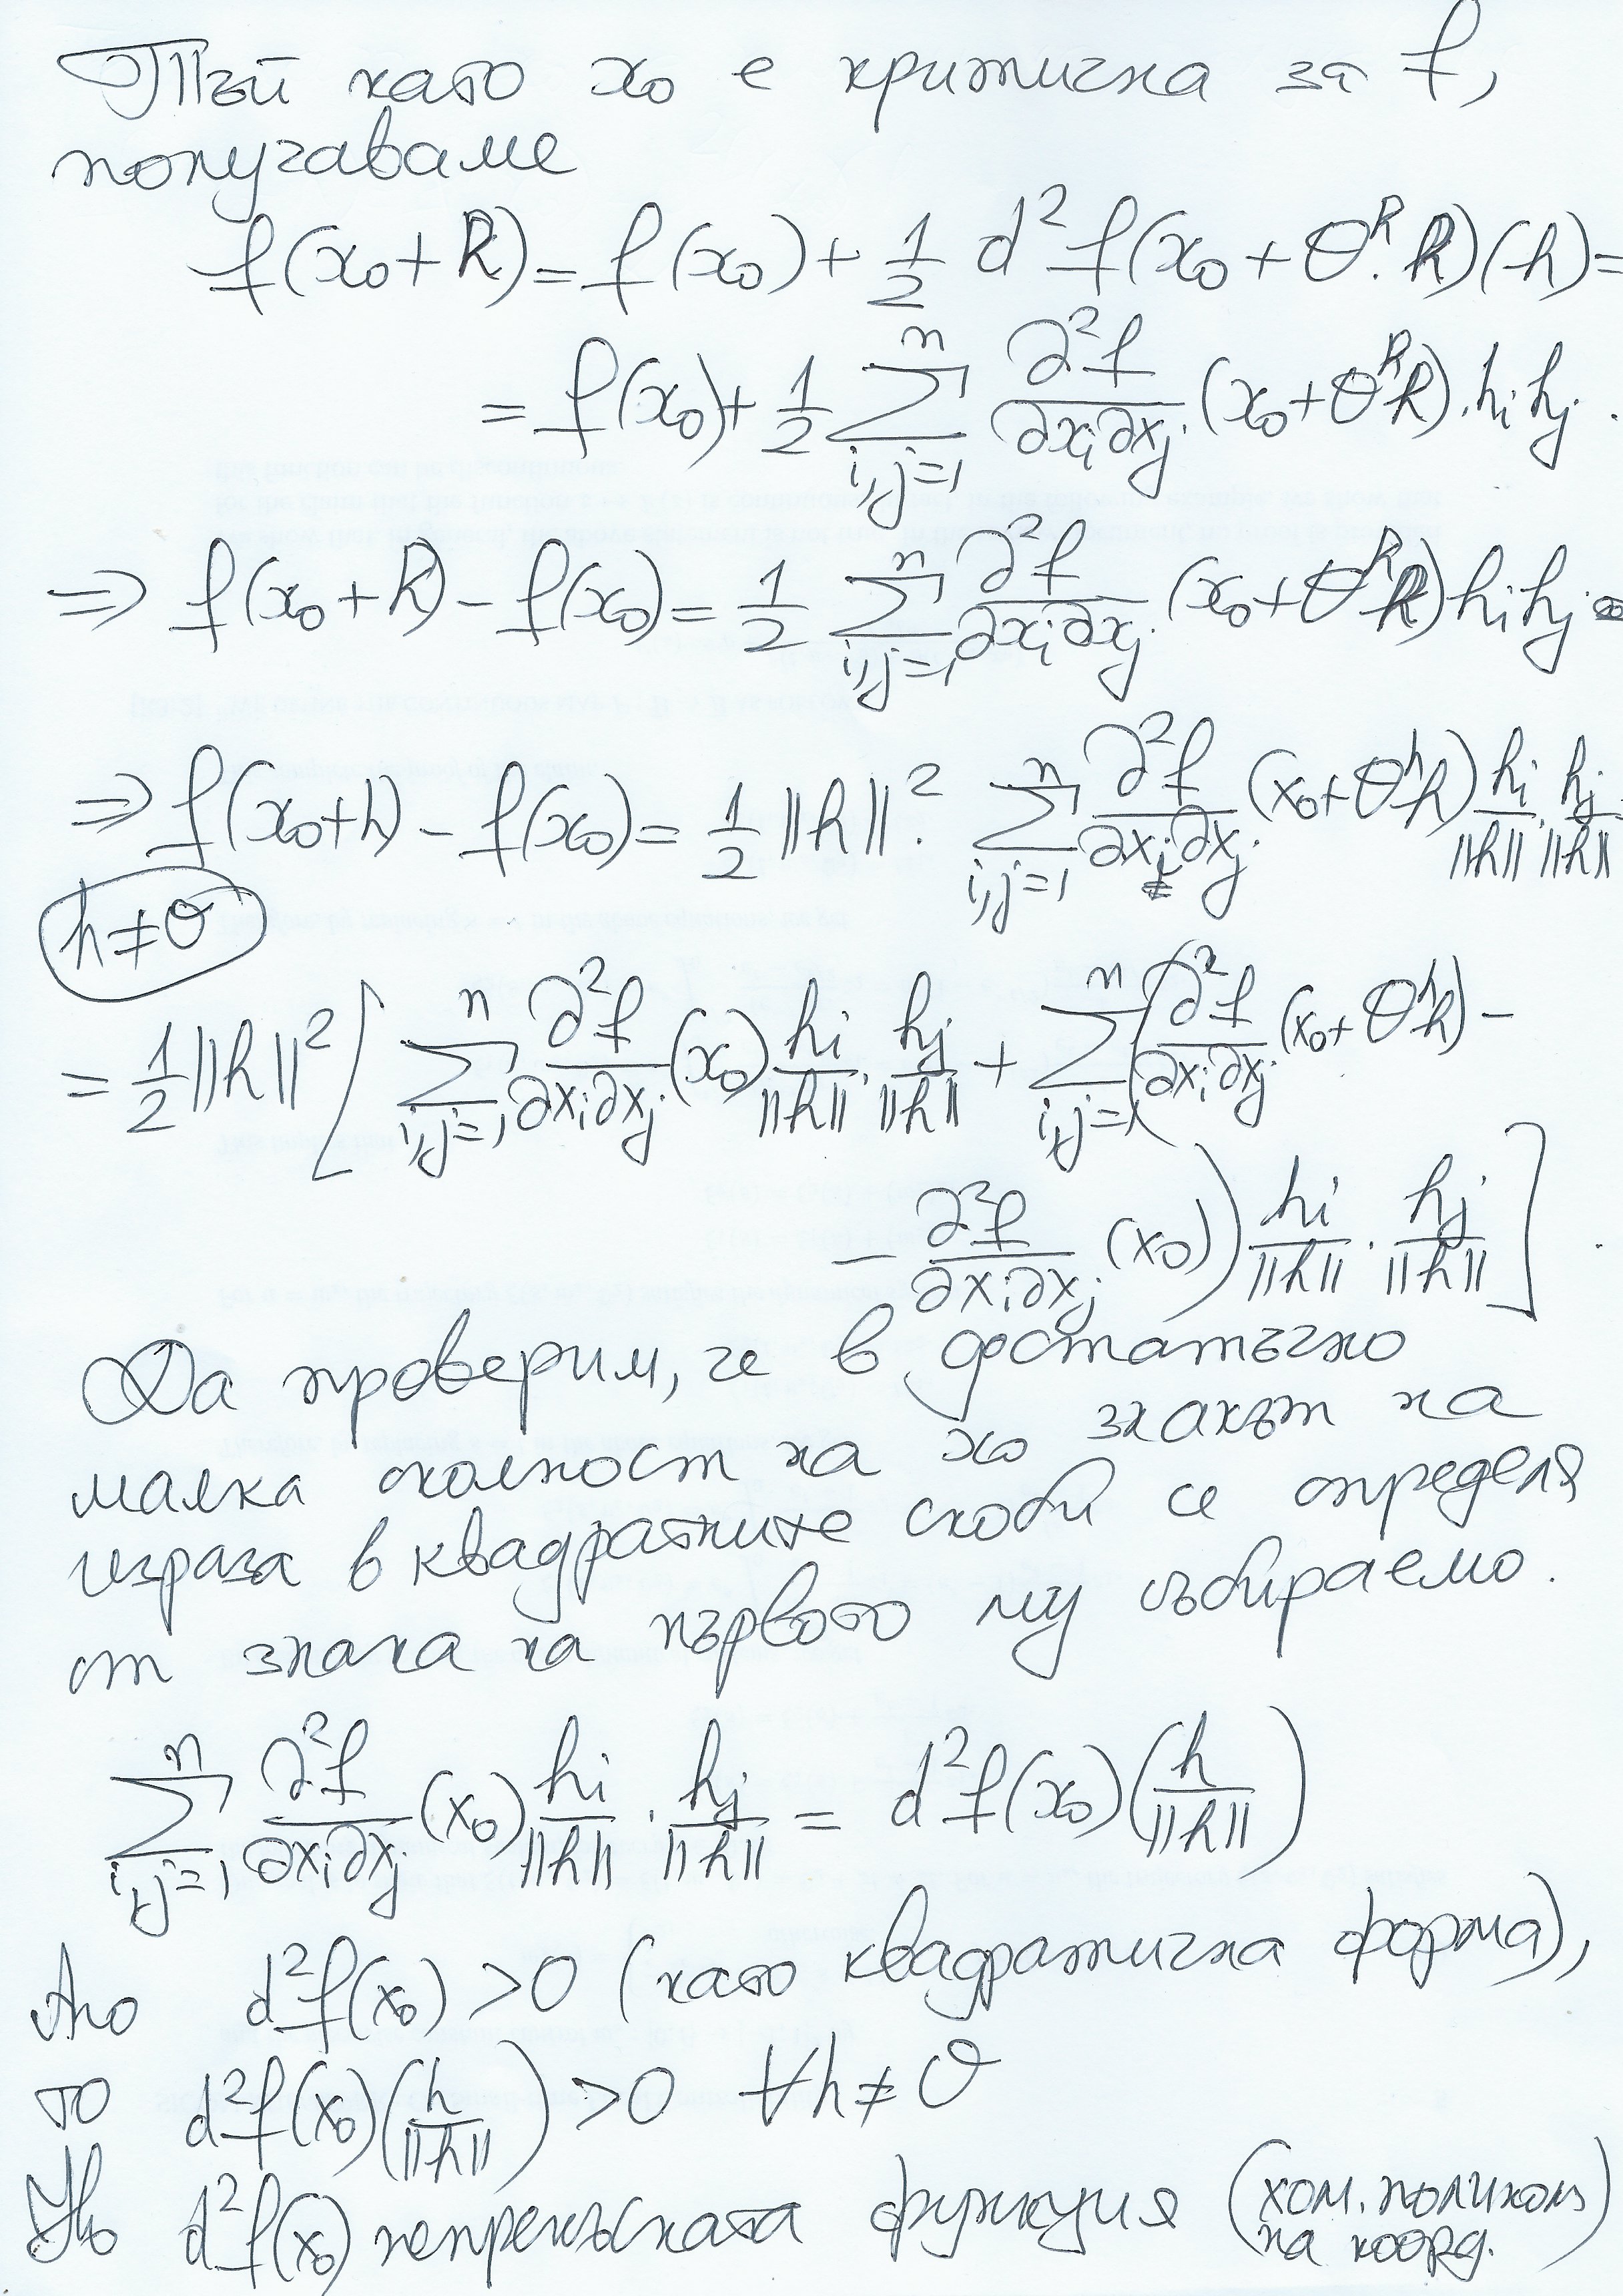 Тъй като x₀ е критична за f,
получаваме
f(x₀+h) = f(x₀) + 1/2 d²f(x₀+θʰ.h)(h) =
= f(x₀) + 1/2 ∑_{i,j=1}^{n} ∂²f/∂xᵢ∂xⱼ (x₀+θʰh).hᵢhⱼ.
⇒ f(x₀+h) − f(x₀) = 1/2 ∑_{i,j=1}^{n} ∂²f/∂xᵢ∂xⱼ (x₀+θʰh) hᵢhⱼ
⇒ f(x₀+h) − f(x₀) = 1/2 ||h||². ∑_{i,j=1}^{n} ∂²f/∂xᵢ∂xⱼ (x₀+θʰh) hᵢ/||h|| . hⱼ/||h||
h ≠ 0
= 1/2 ||h||² [ ∑_{i,j=1}^{n} ∂²f/∂xᵢ∂xⱼ (x₀) hᵢ/||h|| . hⱼ/||h|| + ∑_{i,j=1}^{n} ( ∂²f/∂xᵢ∂xⱼ (x₀+θʰh) −
− ∂²f/∂xᵢ∂xⱼ (x₀) ) hᵢ/||h|| . hⱼ/||h|| ] .
Да проверим, че в достатъчно
малка околност на x₀ знакът на
израза в квадратните скоби се определя
от знака на първото му събираемо.
∑_{i,j=1}^{n} ∂²f/∂xᵢ∂xⱼ (x₀) hᵢ/||h|| . hⱼ/||h|| = d²f(x₀)(h/||h||)
Ако d²f(x₀) > 0 (като квадратична форма),
то d²f(x₀)(h/||h||) > 0 ∀h ≠ 0
Но d²f(x₀) непрекъсната функция (хом. полином
на коорд.)